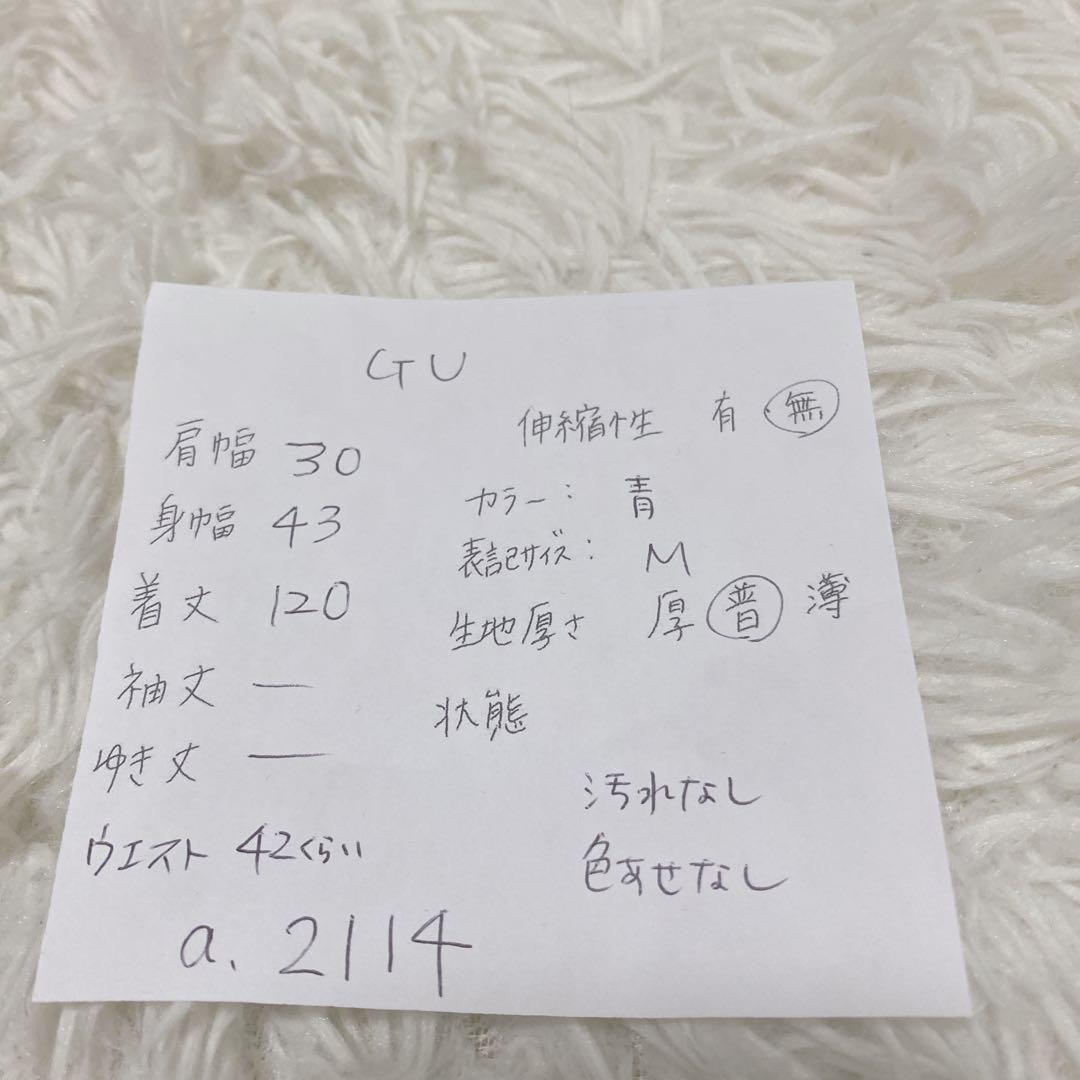 GU
肩幅 30
身幅 43
着丈 120
袖丈 ー
ゆき丈 ー
ウエスト 42くらい
a. 2114
伸縮性 有 無
カラー: 青
表記サイズ: M
生地厚さ 厚 普 薄
状態
汚れなし
色あせなし